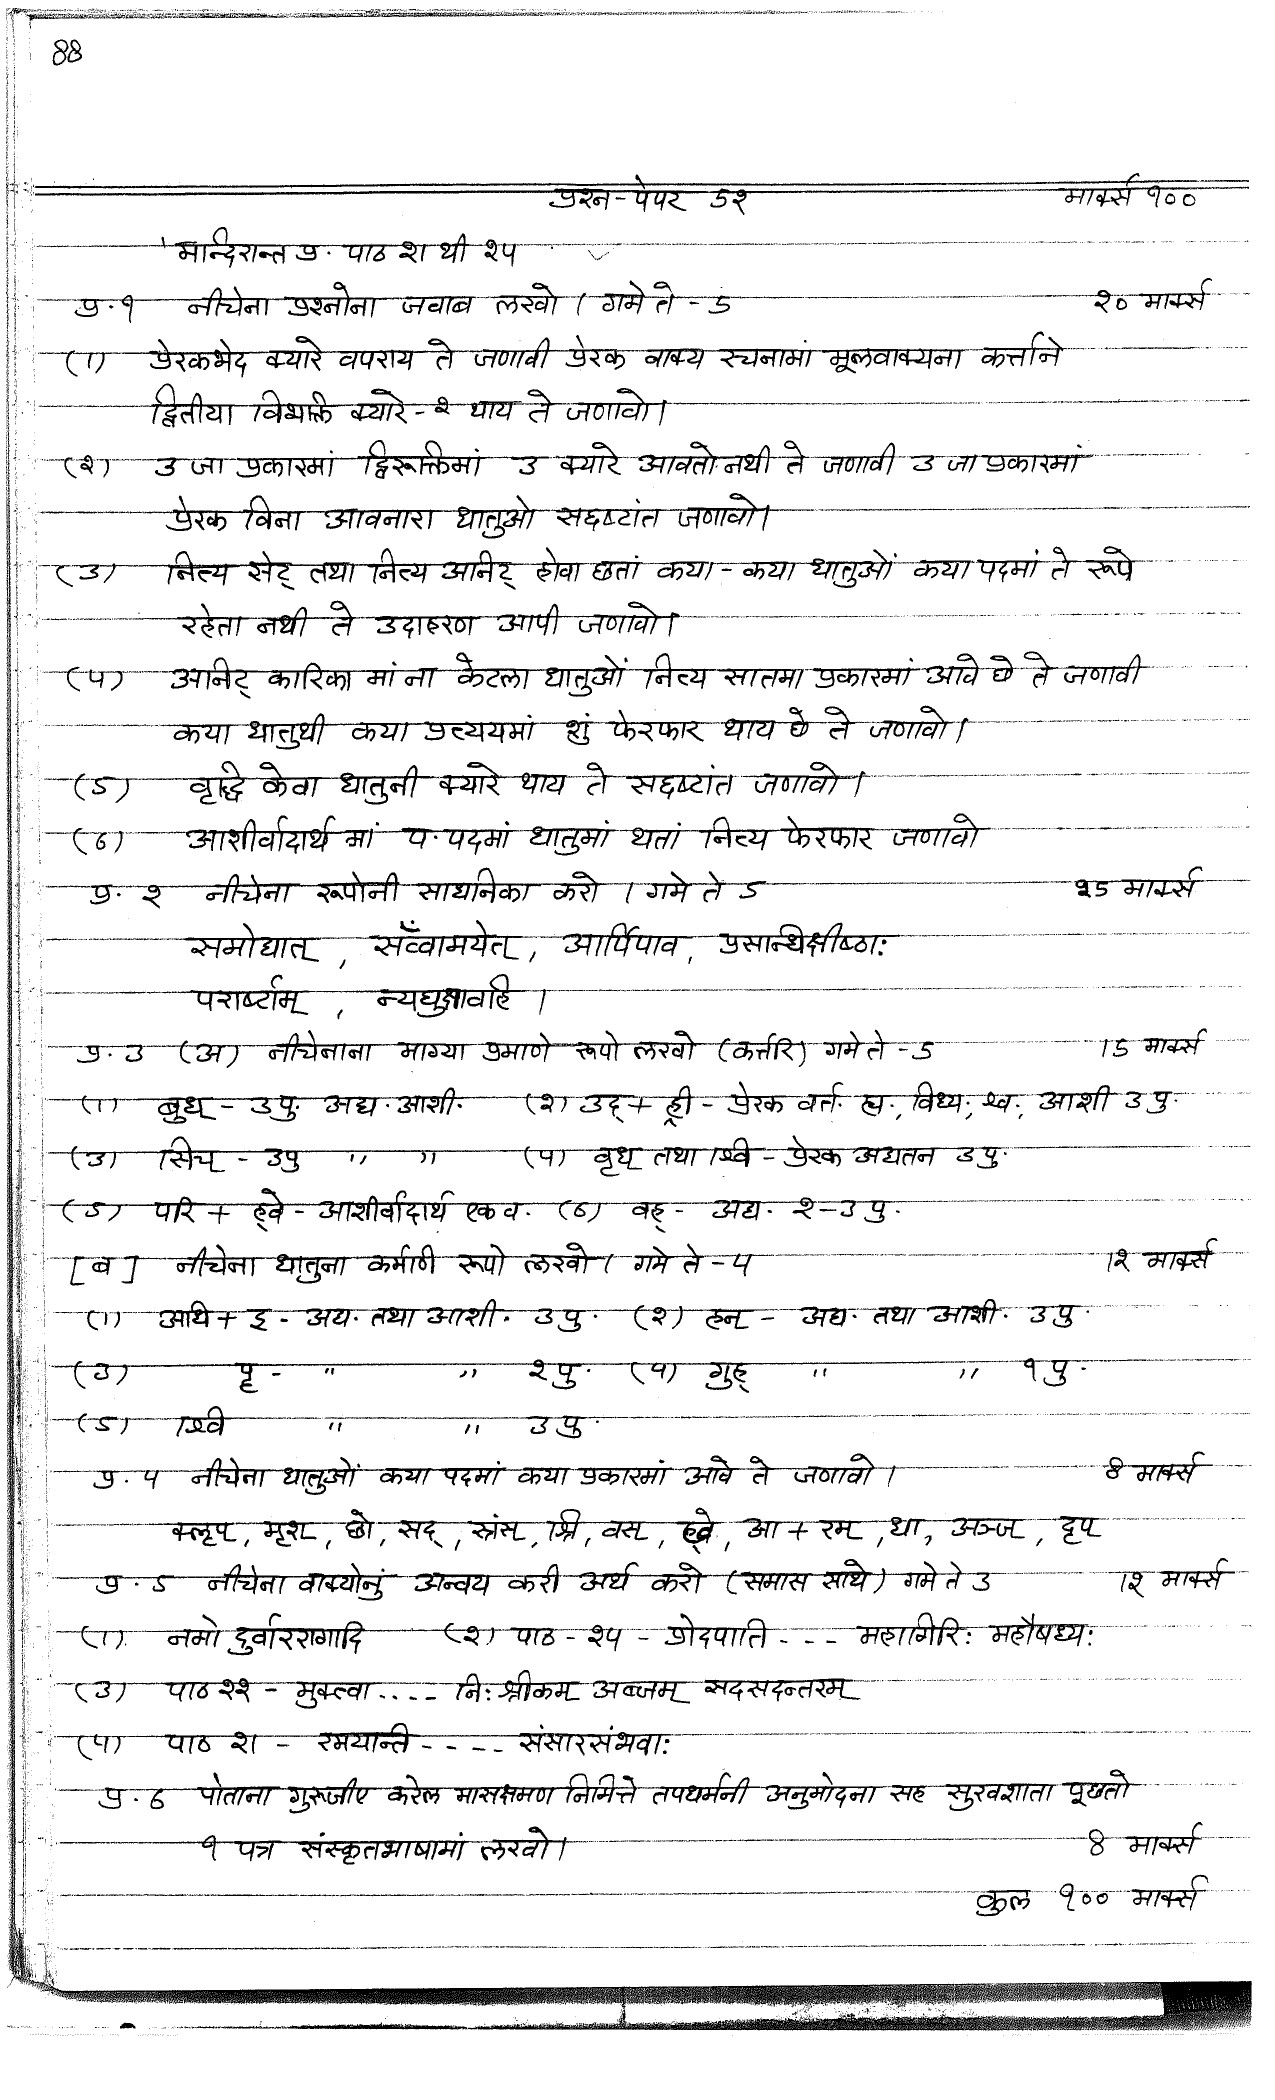 88
प्रश्न-पेपर ५२ मार्क्स १००
मान्दिरान्त प्र. पाठ २१ थी २५
प्र.१ नीचेना प्रश्नोना जवाब लखो। गमे ते - ५ २० मार्क्स
(१) प्रेरकभेद क्यारे वपराय ते जणावी प्रेरक वाक्य रचनामां मूलवाक्यना कर्त्ताने
द्वितीया विभक्ति क्यारे-२ थाय ते जणावो।
(२) ३ जा प्रकारमां द्विरुक्तिमां इ क्यारे आवतो नथी ते जणावी ३ जा प्रकारमां
प्रेरक विना आवनारा धातुओ सदृष्टांत जणावो।
(३) नित्य सेट् तथा नित्य अनिट् होवा छतां कया-कया धातुओं कया पदमां ते रूपे
रहेता नथी ते उदाहरण आपी जणावो।
(४) अनिट् कारिका मां ना केटला धातुओं नित्य सातमा प्रकारमां आवे छे ते जणावी
कया धातुथी कया प्रत्ययमां शुं फेरफार थाय छे ते जणावो।
(५) वृद्धि केवा धातुनी क्यारे थाय ते सदृष्टांत जणावो।
(६) आशीर्वादार्थ मां प. पदमां धातुमां थतां नित्य फेरफार जणावो
प्र. २ नीचेना रूपोनी साधनिका करो। गमे ते ५ २५ मार्क्स
समोद्यात्, सव्ँवामयेत्, आर्पिपाव, प्रसान्धिक्षीष्ठाः
परार्ष्टाम्, न्यघुक्षावहि।
प्र. ३ (अ) नीचेनाना माग्या प्रमाणे रूपो लखो (कर्त्तरि) गमे ते - ५ १५ मार्क्स
(१) बुध् - ३पु. अद्य. आशी. (२) उद् + ह्री - प्रेरक वर्त. ह्य., विध्य., श्व., आशी ३पु.
(३) सिच् - ३पु " " (४) वृध् तथा श्वि - प्रेरक अद्यतन ३पु.
(५) परि + ह्वे - आशीर्वादार्थ एकव. (६) वह् - अद्य. २-३पु.
[ब] नीचेना धातुना कर्मणि रूपो लखो। गमे ते - ४ १२ मार्क्स
(१) अधि + इ - अद्य. तथा आशी. ३पु. (२) हन् - अद्य. तथा आशी. ३पु.
(३) पृ - " " २पु. (४) गुह् " " १पु.
(५) श्वि " " ३पु.
प्र. ४ नीचेना धातुओं कया पदमां कया प्रकारमां आवे ते जणावो। ८ मार्क्स
क्लृप्, मृश्, छो, सद्, स्रंस्, श्रि, वस्, ह्वे, आ + रम्, धा, अञ्ज्, दृप्
प्र. ५ नीचेना वाक्योनुं अन्वय करी अर्थ करो (समास साथे) गमे ते ३ १२ मार्क्स
(१) नमो दुर्वाररागादि (२) पाठ - २५ - प्रोदपाति --- महागिरिः महौषध्यः
(३) पाठ २२ - मुक्त्वा ..-- निःश्रीकम् अब्जम् सदसदन्तरम्
(४) पाठ २१ - रमयान्ति ---- संसारसंभवाः
प्र. ६ पोताना गुरुजीए करेल मासक्षमण निमित्ते तपधर्मनी अनुमोदना सह सुखशाता पूछतो
१ पत्र संस्कृतभाषामां लखो। ८ मार्क्स
कुल १०० मार्क्स